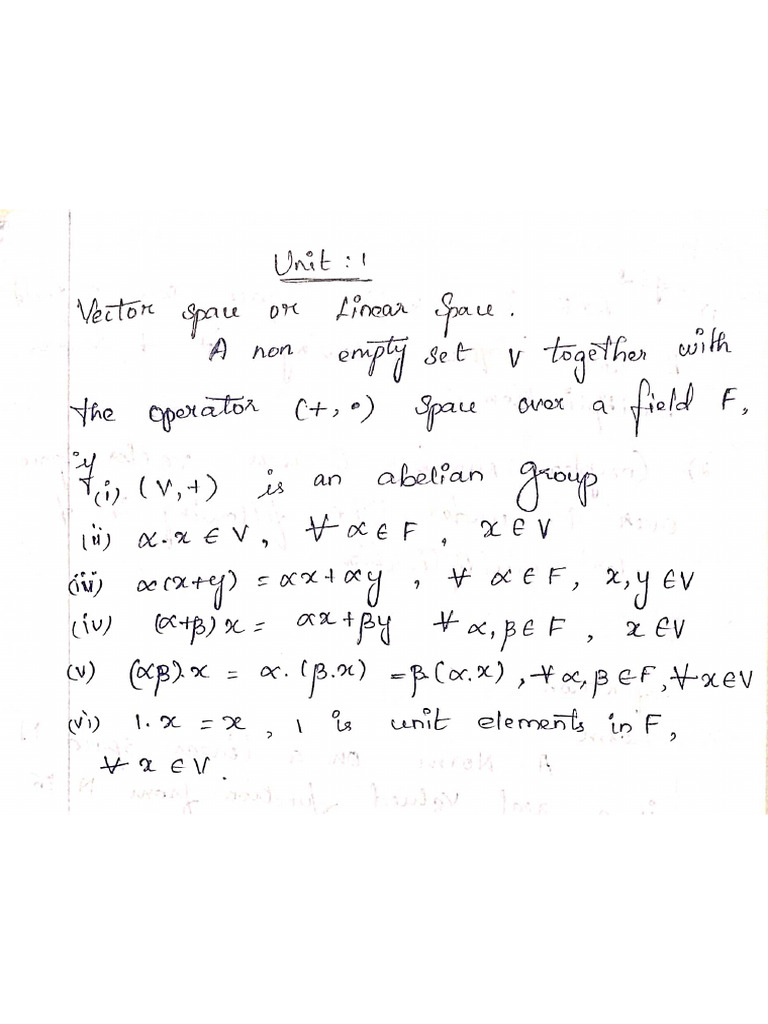 Unit : 1
Vector space or Linear Space.
A non empty set V together with
the operator (+, •) space over a field F,
if
(i) (V,+) is an abelian group
(ii) α.x ∈ V, ∀ α ∈ F, x ∈ V
(iii) α(x+y) = αx+αy, ∀ α ∈ F, x,y ∈ V
(iv) (α+β)x = αx+βy ∀ α,β ∈ F, x ∈ V
(v) (αβ).x = α.(β.x) = β(α.x), ∀ α,β ∈ F, ∀ x ∈ V
(vi) 1.x = x, 1 is unit elements in F,
∀ x ∈ V.